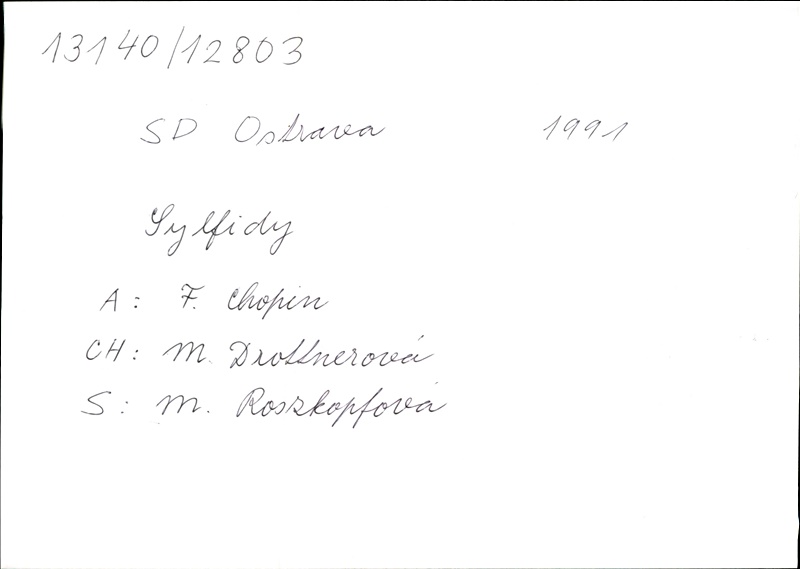 13140/12803
SD Ostrava 1991
Sylfidy
A: F. Chopin
CH: M. Drottnerová
S: M. Roszkopfová